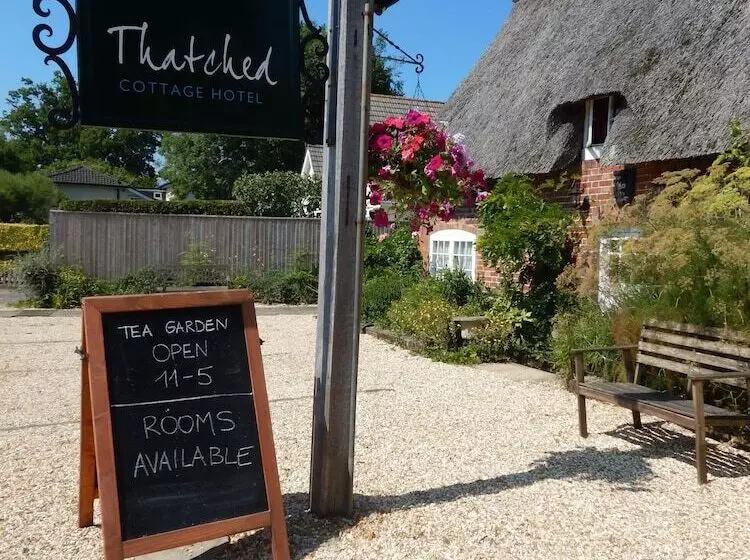 Thatched
COTTAGE HOTEL
TEA GARDEN
OPEN
11-5
ROOMS
AVAILABLE